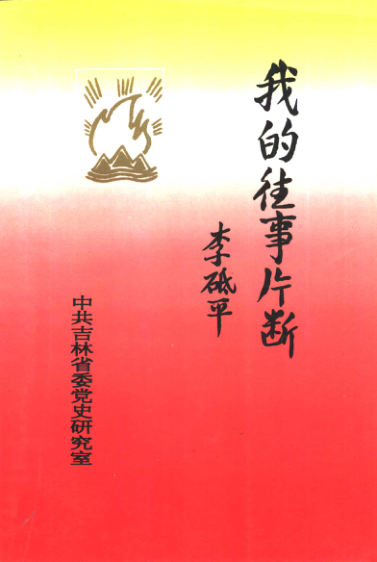 我的往事片断
李砥平
中共吉林省委党史研究室